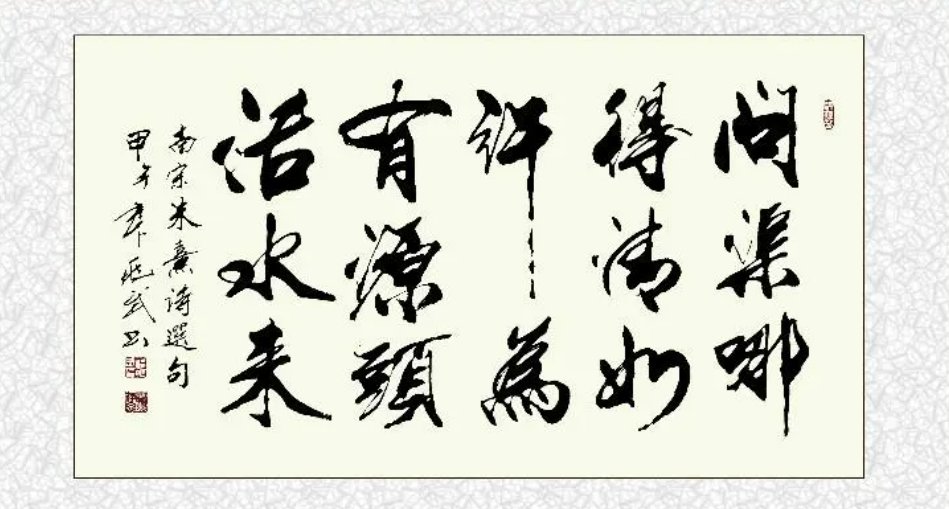 問渠哪
得清如
許為
有源頭
活水来
南宋朱熹詩選句
甲午 武书